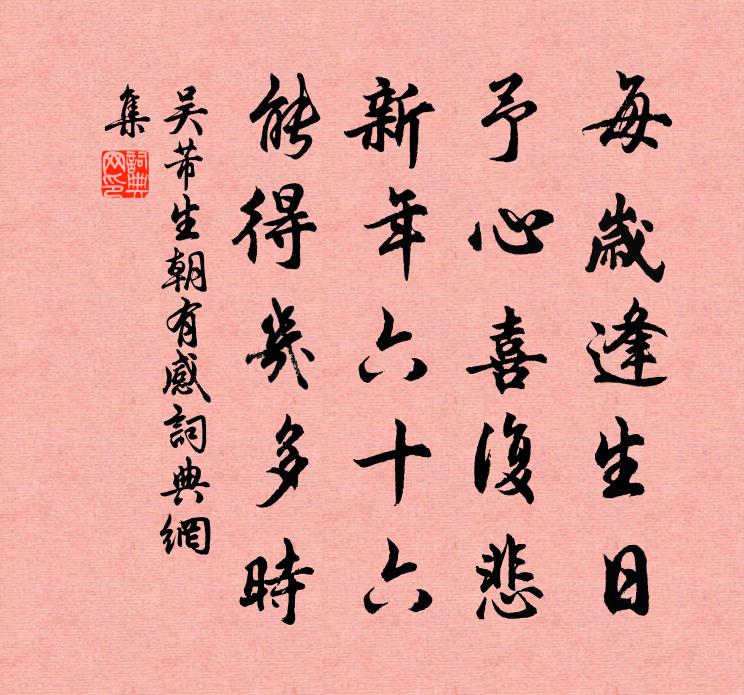 每歲逢生日
予心喜復悲
新年六十六
能得幾多時
吳芾生朝有感詞典網
集
詞典
网印